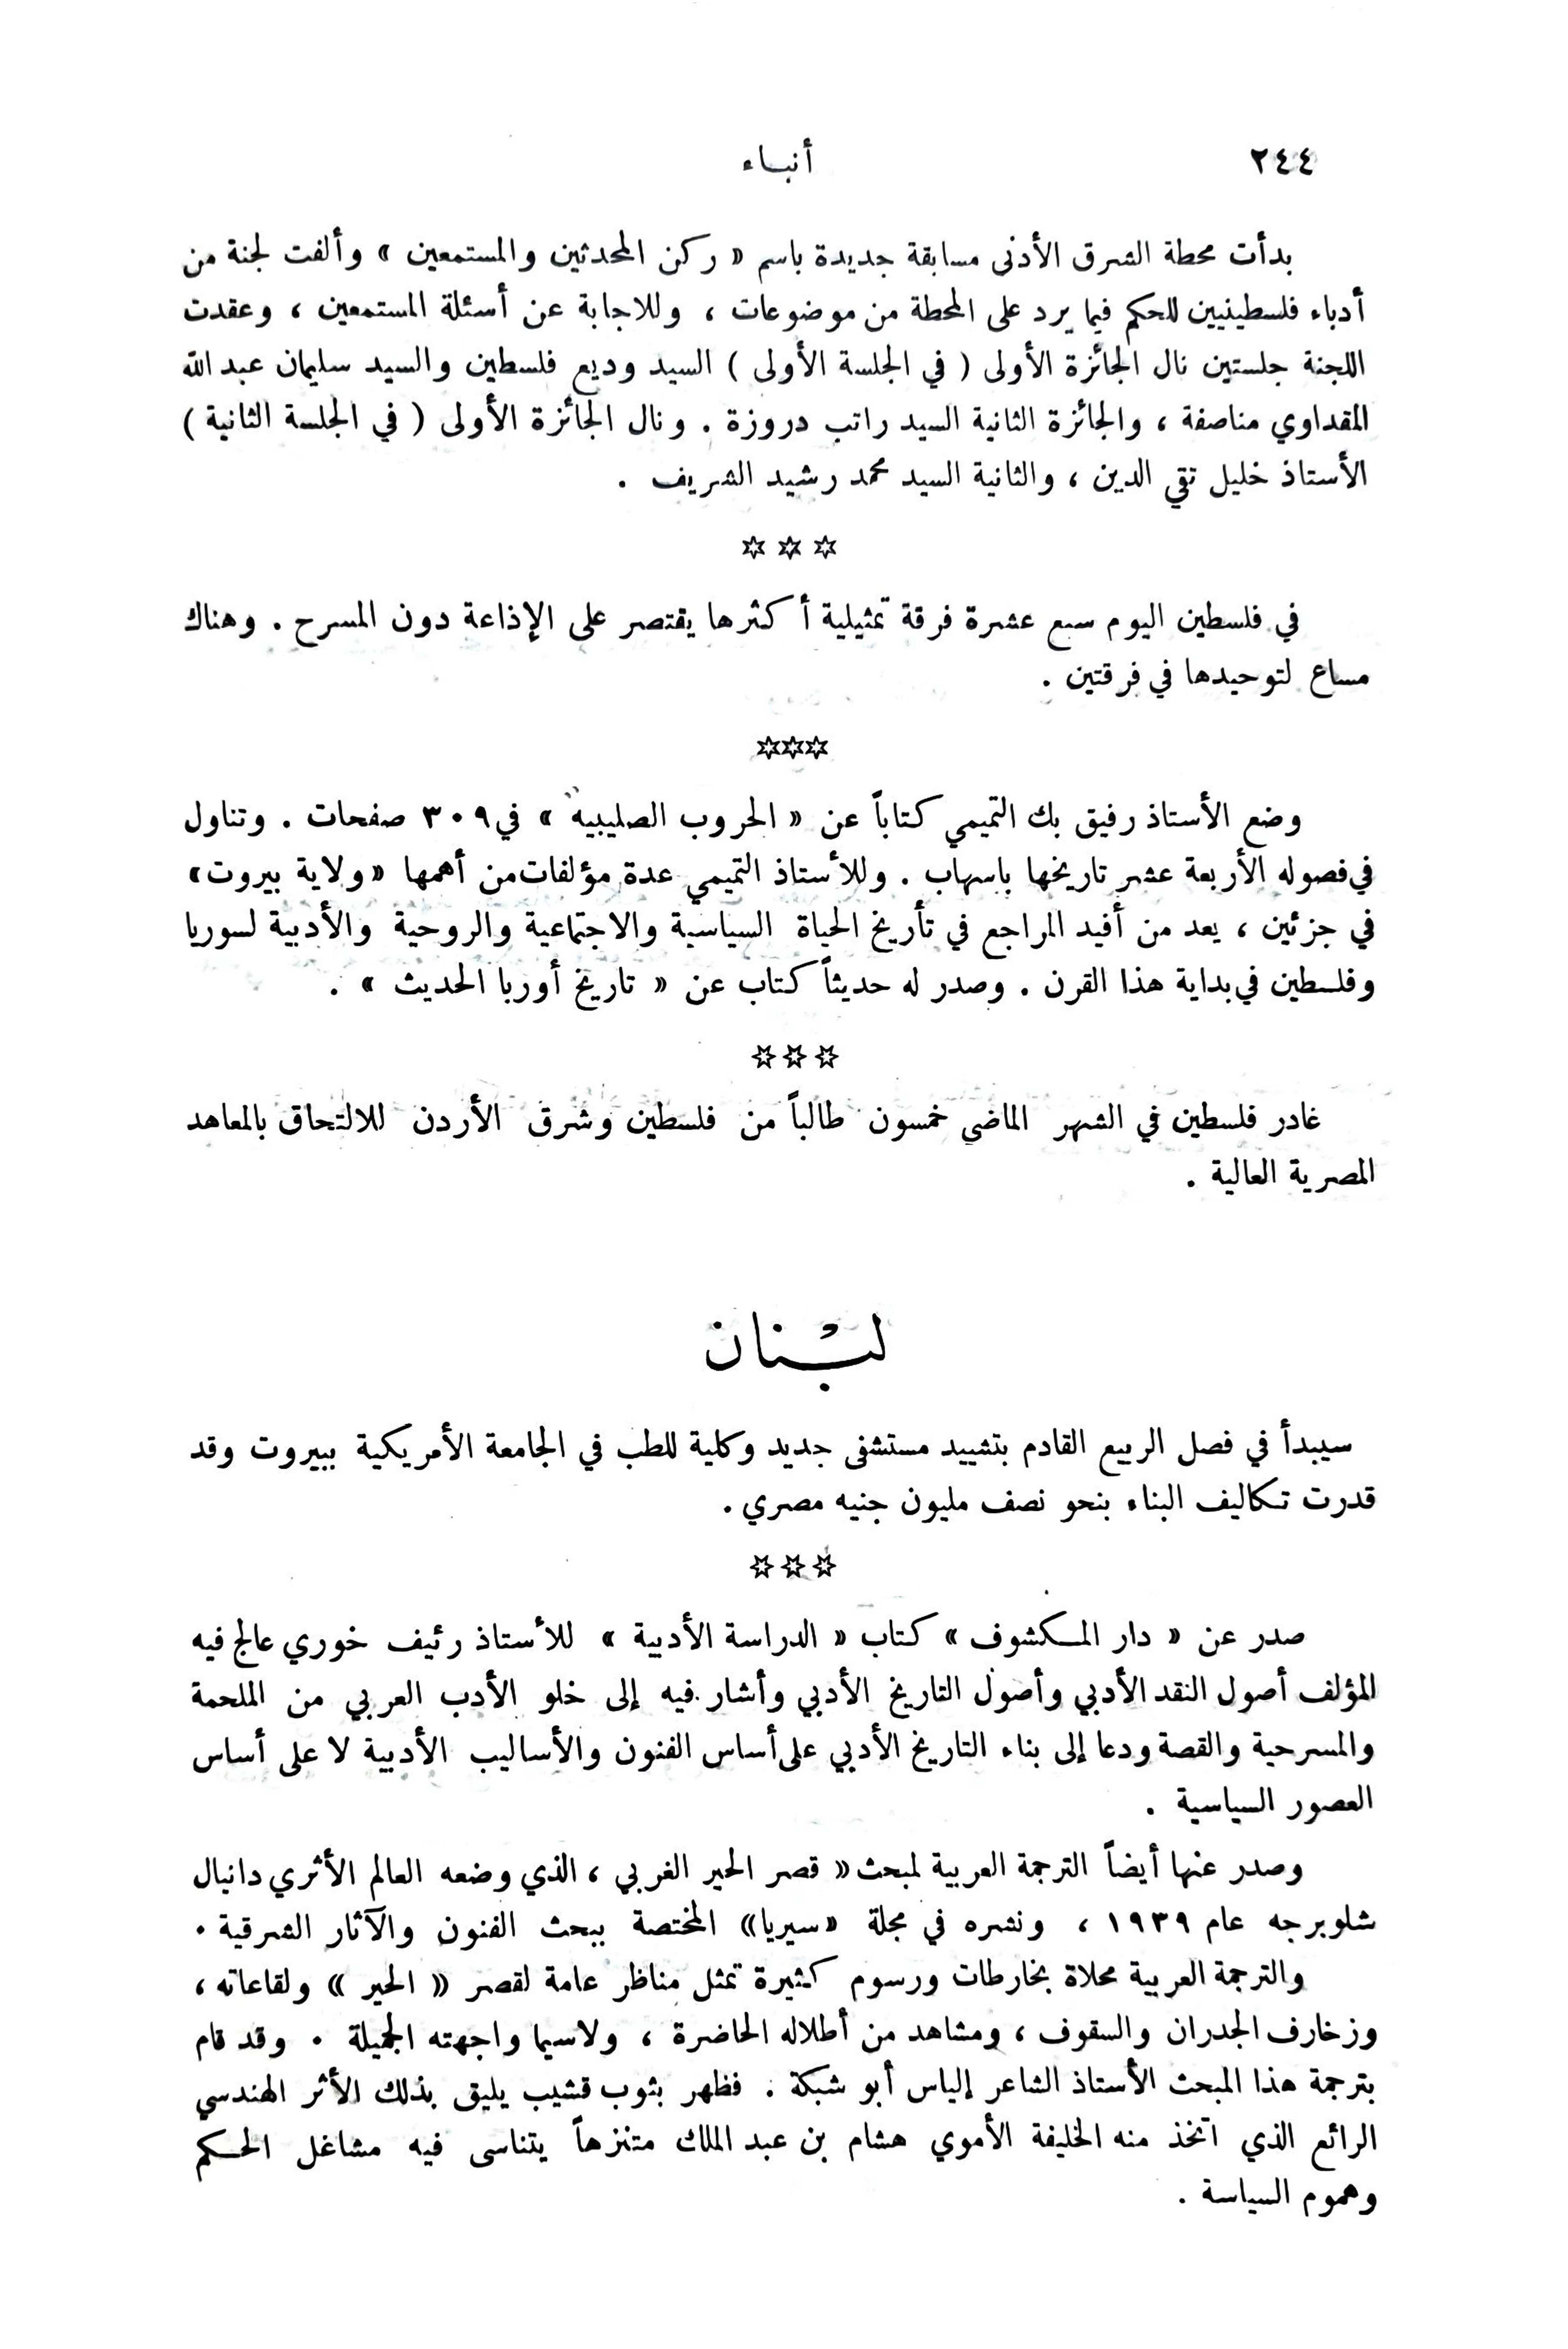 ٢٤٤
أنبـاء
بدأت محطة الشرق الأدنى مسابقة جديدة باسم « ركن المحدثين والمستمعين » وألفت لجنة من
أدباء فلسطينيين للحكم فيما يرد على المحطة من موضوعات ، وللاجابة عن أسئلة المستمعين ، وعقدت
اللجنة جلستين نال الجائزة الأولى ( في الجلسة الأولى ) السيد وديع فلسطين والسيد سليمان عبد الله
المقداوي مناصفة ، والجائزة الثانية السيد راتب دروزة . ونال الجائزة الأولى ( في الجلسة الثانية )
الأستاذ خليل تقي الدين ، والثانية السيد محمد رشيد الشريف .
☆ ☆ ☆
في فلسطين اليوم سبع عشرة فرقة تمثيلية أكثرها يقتصر على الإذاعة دون المسرح . وهناك
مساع لتوحيدها في فرقتين .
☆☆☆
وضع الأستاذ رفيق بك التميمي كتاباً عن « الحروب الصليبية » في ٣٠٩ صفحات . وتناول
في فصوله الأربعة عشر تاريخها باسهاب . وللأستاذ التميمي عدة مؤلفات من أهمها «ولاية بيروت»
في جزئين ، يعد من أفيد المراجع في تأريخ الحياة السياسية والاجتماعية والروحية والأدبية لسوريا
وفلسطين في بداية هذا القرن . وصدر له حديثاً كتاب عن « تاريخ أوربا الحديث » .
☆☆☆
غادر فلسطين في الشهر الماضي خمسون طالباً من فلسطين وشرق الأردن للالتحاق بالمعاهد
المصرية العالية .
لبْنان
سيبدأ في فصل الربيع القادم بتشييد مستشفى جديد وكلية للطب في الجامعة الأمريكية ببيروت وقد
قدرت تكاليف البناء بنحو نصف مليون جنيه مصري .
☆☆☆
صدر عن « دار المكشوف » كتاب « الدراسة الأدبية » للأستاذ رئيف خوري عالج فيه
المؤلف أصول النقد الأدبي وأصول التاريخ الأدبي وأشار فيه إلى خلو الأدب العربي من الملحمة
والمسرحية والقصة ودعا إلى بناء التاريخ الأدبي على أساس الفنون والأساليب الأدبية لا على أساس
العصور السياسية .
وصدر عنها أيضاً الترجمة العربية لمبحث « قصر الحير الغربي ، الذي وضعه العالم الأثري دانيال
شلوبرجه عام ١٩٣٩ ، ونشره في مجلة «سيريا» المختصة ببحث الفنون والآثار الشرقية .
والترجمة العربية محلاة بخارطات ورسوم كثيرة تمثل مناظر عامة لقصر « الحير » ولقاعاته ،
وزخارف الجدران والسقوف ، ومشاهد من أطلاله الحاضرة ، ولاسيما واجهته الجميلة . وقد قام
بترجمة هذا المبحث الأستاذ الشاعر إلياس أبو شبكة . فظهر بثوب قشيب يليق بذلك الأثر الهندسي
الرائع الذي اتخذ منه الخليفة الأموي هشام بن عبد الملك متنزهاً يتناسى فيه مشاغل الحكم
وهموم السياسة .